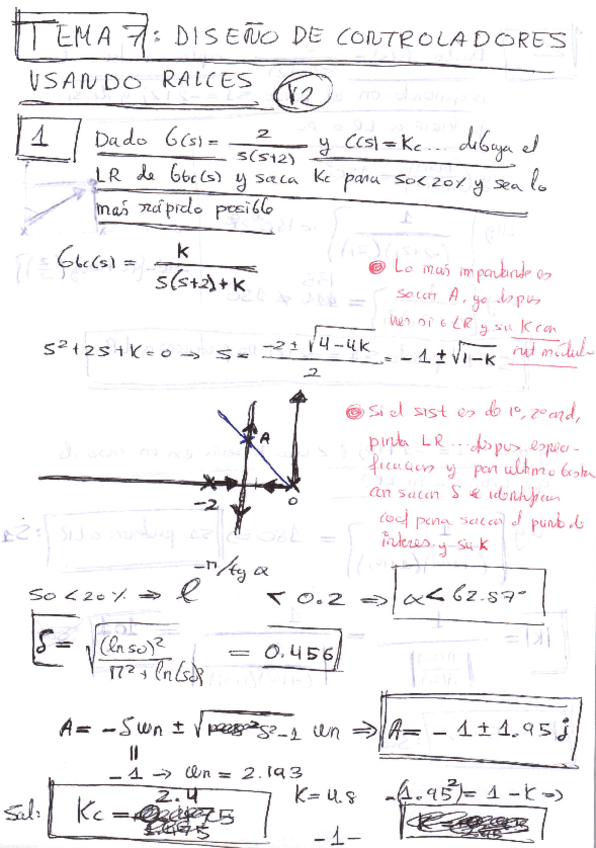 TEMA 7: DISEÑO DE CONTROLADORES
USANDO RAICES V2
1 Dado G(s) = 2/s(s+2) y C(s) = Kc ... dibuja el
LR de Gbc(s) y saca Kc para SO<20% y sea lo
mas rápido posible
Gbc(s) = K/s(s+2)+K
Lo mas importante es
sacar A, ya despues
LR y su K con
s²+2s+K=0 → s = -2±√4-4K/2 = -1±√1-K
Si el sist es de 1º, 2º ord,
pinta LR ... despues especi-
ficaciones y por ultimo basta
con sacar S e identificar
coef para sacar el punto de
interes y su K
A
-2 0
SO<20% ⇒ e^-π/tg α < 0.2 ⇒ α<62.87°
δ = √(ln so)²/π²+ln(so)² = 0.456
A = -δωn ± √δ²-1 ωn ⇒ A = -1 ± 1.95j
=
-1 → ωn = 2.193
Sol: Kc = 2.4 K = 4.8 -(1.95²) = 1-K ⇒
-1-